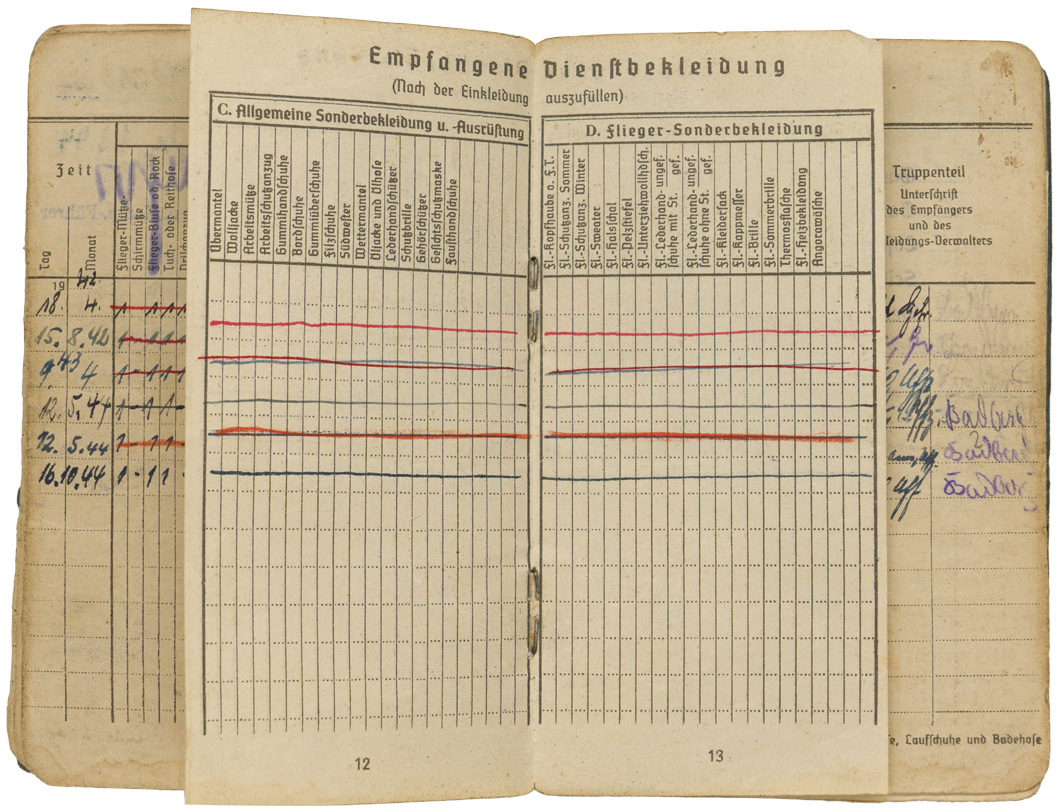 Empfangene Dienstbekleidung
(Nach der Einkleidung auszufüllen)
Zeit
Tag
Monat
Flieger-Mütze
Schirmmütze
Flieger-Bluse od. Rock
Tuch- oder Reithose
C. Allgemeine Sonderbekleidung u. -Ausrüstung
Übermantel
Wolljacke
Arbeitsmütze
Arbeitsschutzanzug
Gummihandschuhe
Bordschuhe
Gummiüberschuhe
Filzschuhe
Südwester
Wettermantel
Öljacke und Ölhose
Lederhandschützer
Schutzbrille
Gehörschützer
Gesichtsschutzmaske
Fausthandschuhe
D. Flieger-Sonderbekleidung
Fl.-Kopfhaube o. F.T.
Fl.-Schutzanz. Sommer
Fl.-Schutzanz. Winter
Fl.-Sweater
Fl.-Halsschal
Fl.-Pelzstiefel
Fl.-Unterziehwollhdsch.
Fl.-Lederhand- ungef.
schuhe mit St. gef.
Fl.-Lederhand- ungef.
schuhe ohne St. gef.
Fl.-Kleidersack
Fl.-Kappmesser
Fl.-Brille
Fl.-Sommerbrille
Thermosflasche
Fl.-Heizbekleidung
Angorawäsche
Truppenteil
Unterschrift
des Empfängers
und des
leidungs-Verwalters
19 42
18. 4. 1 1 1
15. 8. 42 1 1 1
43
9. 4 1 - 1 1
12. 5. 44 1 - 1 1
12. 5. 44 1 1 1
16. 10. 44 1 - 1 1
e, Laufschuhe und Badehose
12
13